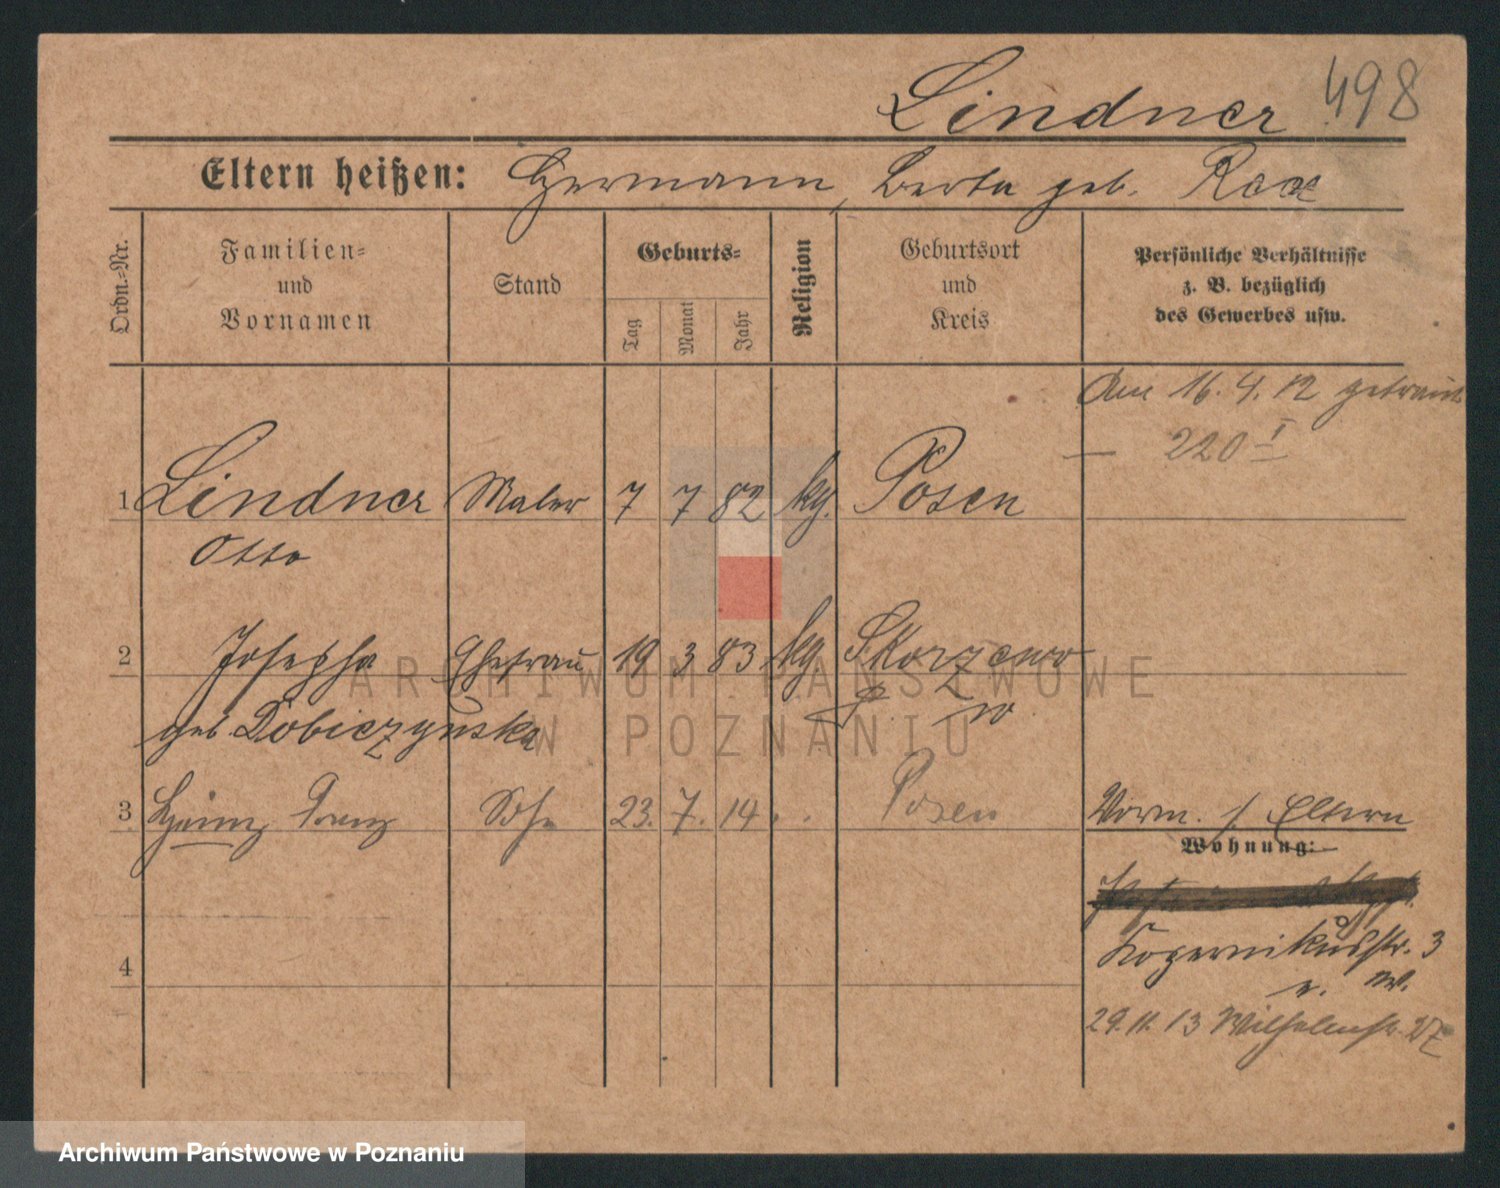 Lindner 498
Eltern heißen: Hermann, Berta geb.
Ordn.-Nr.
Familien-
und
Vornamen
Stand
Geburts-
Tag
Monat
Jahr
Religion
Geburtsort
und
Kreis
Persönliche Verhältnisse
z. B. bezüglich
des Gewerbes usw.
Am 16. 4. 12 getraut
— 220 I
1 Lindner Maler 7 7 82 kg. Posen
Otto
2 Josepha Ehefrau 19 3 83 kg Skorzewo
geb. Dobiczynska P. W
3 Heinz Franz Sohn 23. 7. 14. Posen Vorm. s. Eltern
Wohnung:
Kopernikusstr. 3
4
29. 11. 13 Wilhelmstr. 27
ARCHIWUM PAŃSTWOWE
W POZNANIU
Archiwum Państwowe w Poznaniu